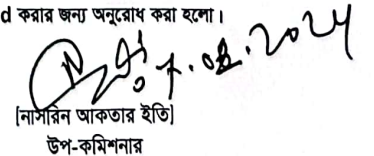 d করার জন্য অনুরোধ করা হলো।
০৭.০৪.২০২৫
[নাসরিন আকতার ইতি]
উপ-কমিশনার